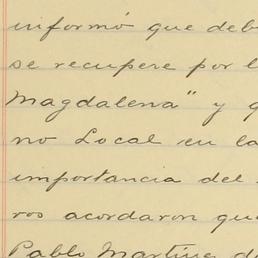 informó que deb
se recupere por l
Magdalena" y q
no Local en la
importancia del
ros acordaron que
Pablo Martíne d